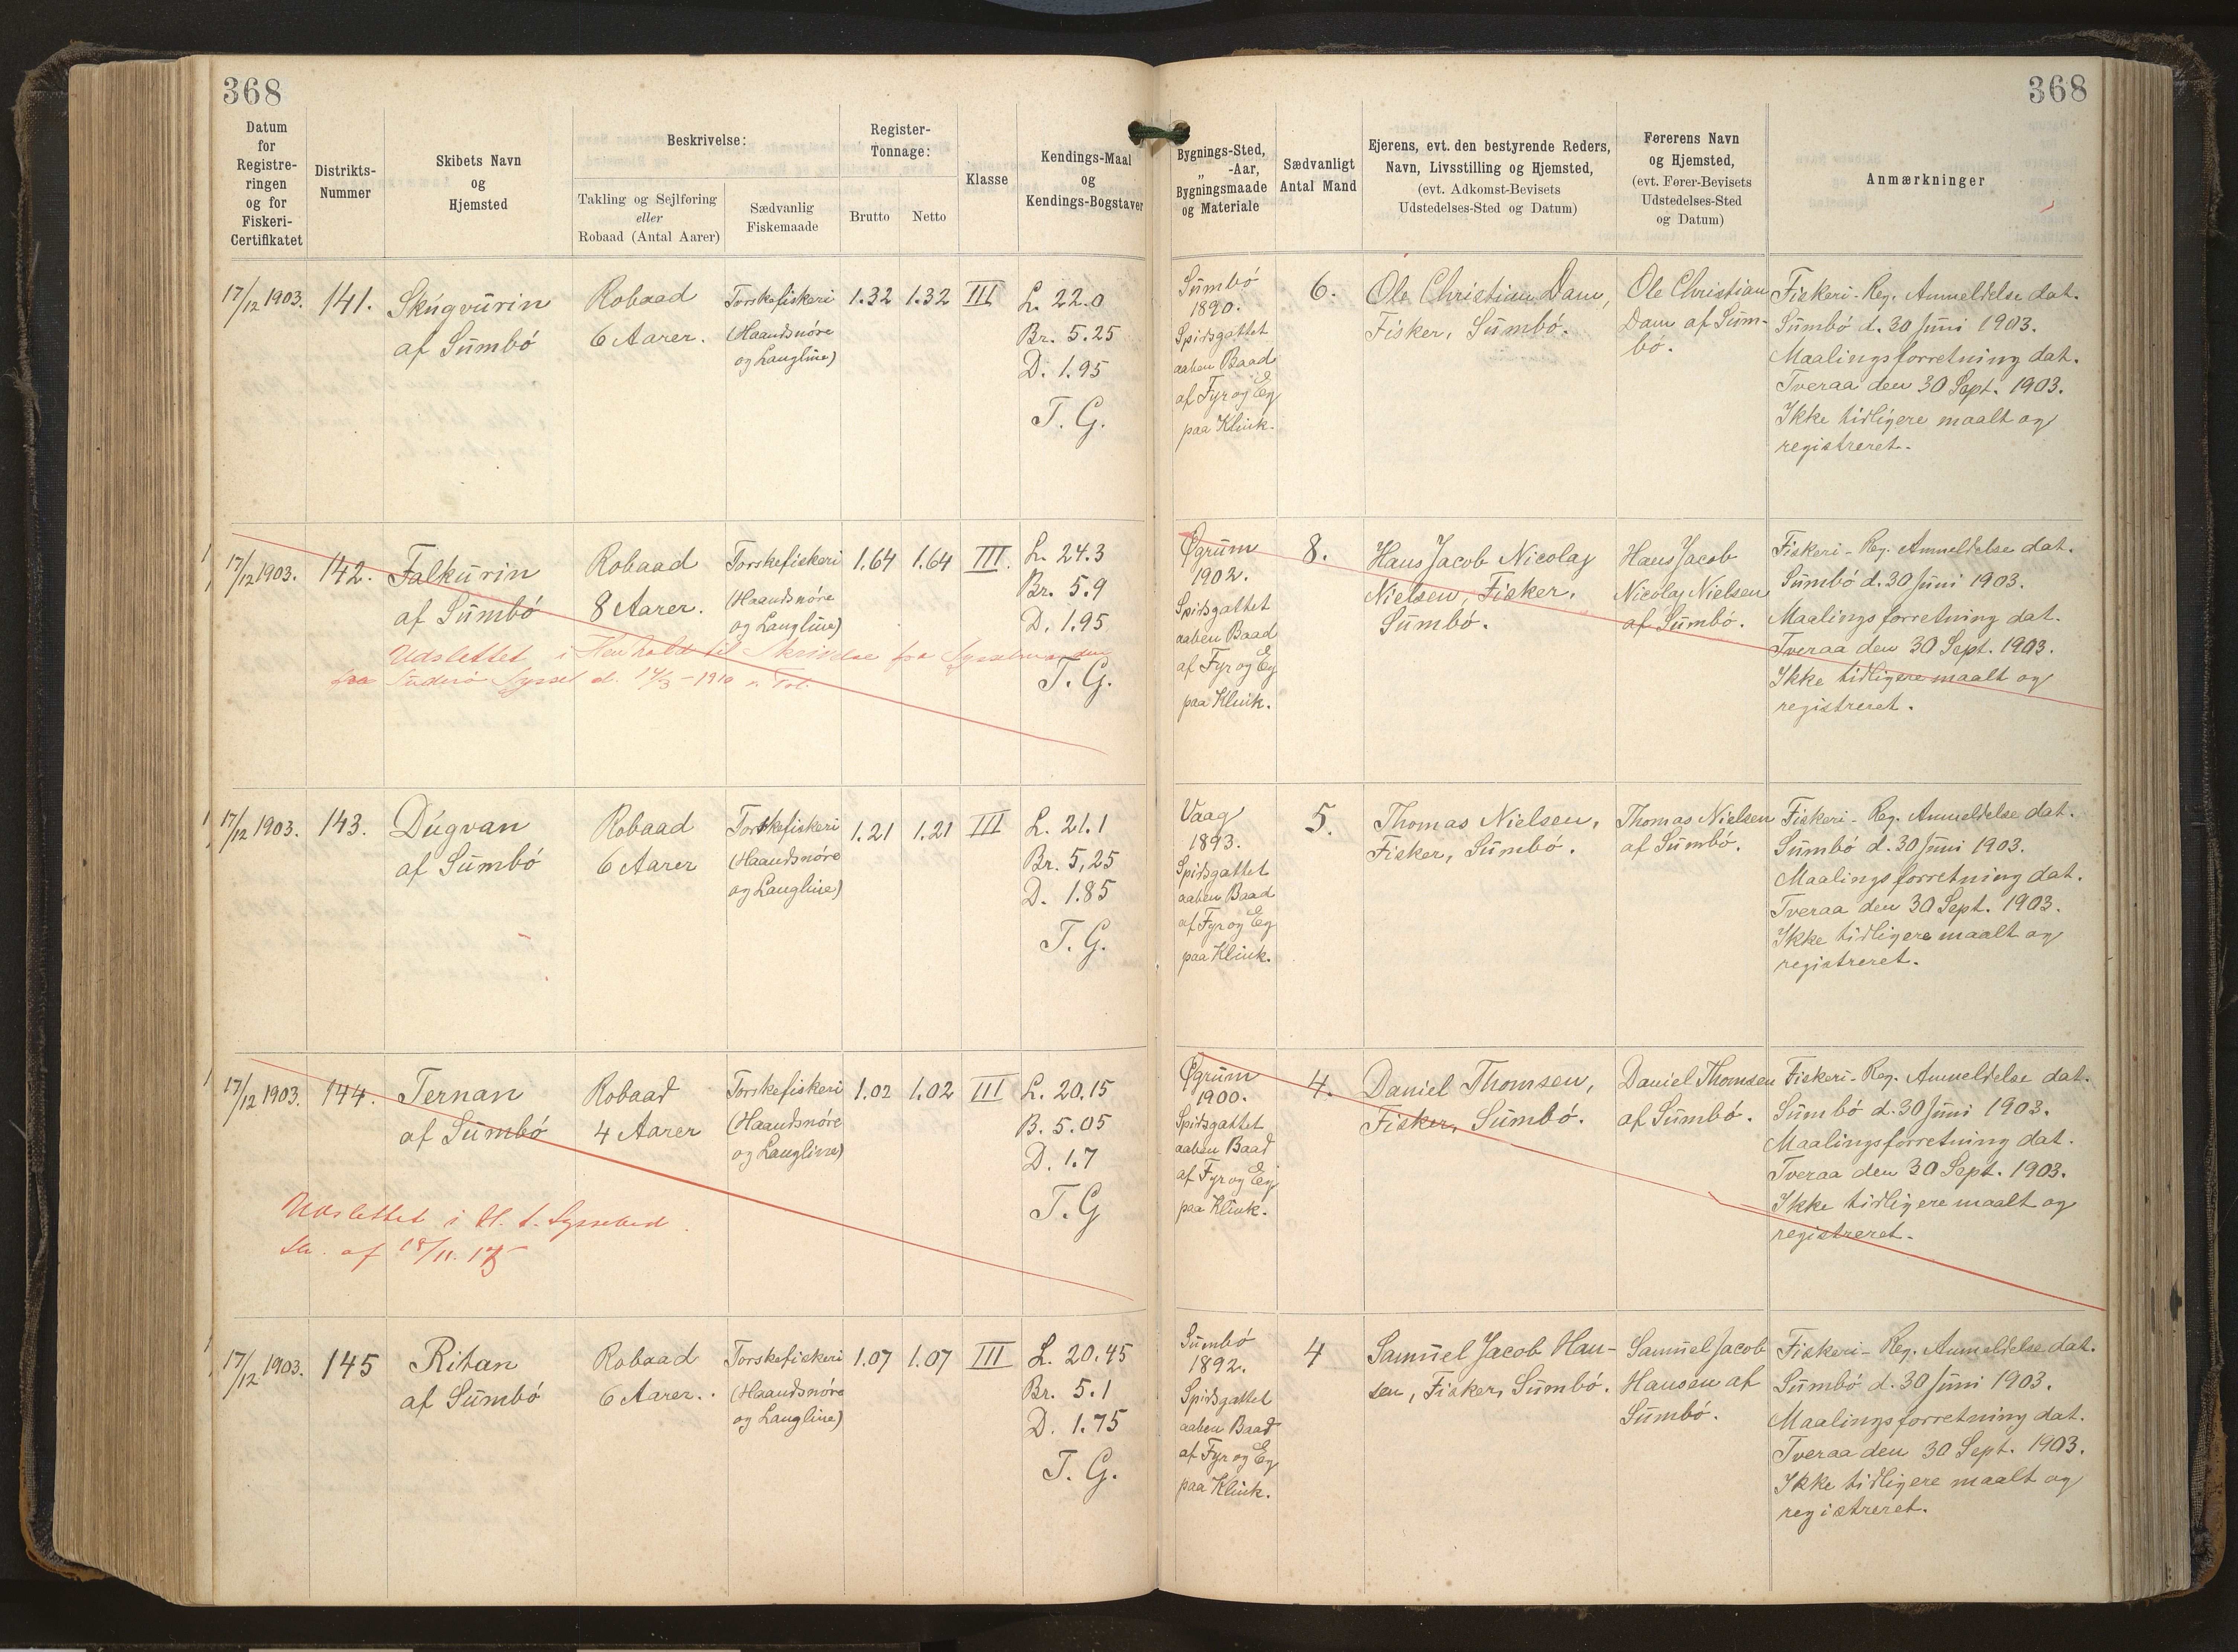 368
368
Datum
for
Registre-
ringen
og for
Fiskeri-
Certifikatet
Distrikts-
Nummer
Skibets Navn
og
Hjemsted
Beskrivelse:
Takling og Sejlføring
eller
Robaad (Antal Aarer)
Sædvanlig
Fiskemaade
Register-
Tonnage:
Brutto
Netto
Klasse
Kendings-Maal
og
Kendings-Bogstaver
Bygnings-Sted,
„ -Aar,
Bygningsmaade
og Materiale
Sædvanligt
Antal Mand
Ejerens, evt. den bestyrende Reders,
Navn, Livsstilling og Hjemsted,
(evt. Adkomst-Bevisets
Udstedelses-Sted og Datum)
Førerens Navn
og Hjemsted,
(evt. Fører-Bevisets
Udstedelses-Sted
og Datum)
Anmærkninger
17/12 1903.
141.
Skúgvúrin
af Súmbó
Robaad
6 Aarer.
Torskefiskeri
(Haandsnóre
og Langline)
1.32
1.32
III
L. 22.0
Br. 5.25
D. 1.95
T. G.
Súmbó
1890.
Spidsgattet
aaben Baad
af Fyr og Eg
paa Klink.
6.
Ole Christian Dam,
Fisker, Súmbó.
Ole Christian
Dam af Súm-
bó.
Fiskeri-Reg. Anmeldelse dat.
Súmbó d. 30 Júni 1903.
Maalingsforretning dat.
Tveraa den 30 Sept. 1903.
Ikke tidligere maalt og
registreret.
17/12 1903.
142.
Falkúrin
af Súmbó
Robaad
8 Aarer.
Torskefiskeri
(Haandsnóre
og Langline)
1.64
1.64
III.
L. 24.3
Br. 5.9
D. 1.95
T. G.
Udslettet i Henhold til Skrivelse fra Sysselmanden
Suderø Syssel d. 17/3-1910
Øgrúm
1902.
Spidsgattet
aaben Baad
af Fyr og Eg
paa Klink.
8.
Hans Jacob Nicolaj
Nielsen, Fisker,
Súmbó.
Hans Jacob
Nicolaj Nielsen
af Súmbó.
Fiskeri-Reg. Anmeldelse dat.
Súmbó d. 30 Júni 1903.
Maalingsforretning dat.
Tveraa den 30 Sept. 1903.
Ikke tidligere maalt og
registreret.
17/12 1903.
143.
Dúgvan
af Súmbó
Robaad
6 Aarer
Torskefiskeri
(Haandsnóre
og Langline)
1.21
1.21
III
L. 21.1
Br. 5,25
D. 1.85
T. G.
Vaag
1893.
Spidsgattet
aaben Baad
af Fyr og Eg
paa Klink.
5.
Thomas Nielsen,
Fisker, Súmbó.
Thomas Nielsen
af Súmbó.
Fiskeri-Reg. Anmeldelse dat.
Súmbó d. 30 Júni 1903.
Maalingsforretning dat.
Tveraa den 30 Sept. 1903.
Ikke tidligere maalt og
registreret.
17/12 1903.
144.
Ternan
af Súmbó
Robaad
4 Aarer
Torskefiskeri
(Haandsnóre
og Langline)
1.02
1.02
III
L. 20.15
B. 5.05
D. 1.7
T. G
Udslettet i H. t. Sysselmd
Skr. af 18/11.
Øgrúm
1900.
Spidsgattet
aaben Baad
af Fyr og Eg
paa Klink.
4.
Daniel Thomsen,
Fisker, Súmbó.
Daniel Thomsen
af Súmbó.
Fiskeri-Reg. Anmeldelse dat.
Súmbó d. 30 Júni 1903.
Maalingsforretning dat.
Tveraa den 30 Sept. 1903.
Ikke tidligere maalt og
registreret.
17/12 1903.
145
Ritan
af Súmbó
Robaad
6 Aarer.
Torskefiskeri
(Haandsnóre
og Langline)
1.07
1.07
III
L. 20.45
Br. 5.1
D. 1.75
T. G.
Súmbó
1892.
Spidsgattet
aaben Baad
af Fyr og Eg
paa Klink.
4
Samúel Jacob Han-
sen, Fisker, Súmbó.
Samúel Jacob
Hansen af
Súmbó.
Fiskeri-Reg. Anmeldelse dat.
Súmbó d. 30 Júni 1903.
Maalingsforretning dat.
Tveraa den 30 Sept. 1903.
Ikke tidligere maalt og
registreret.